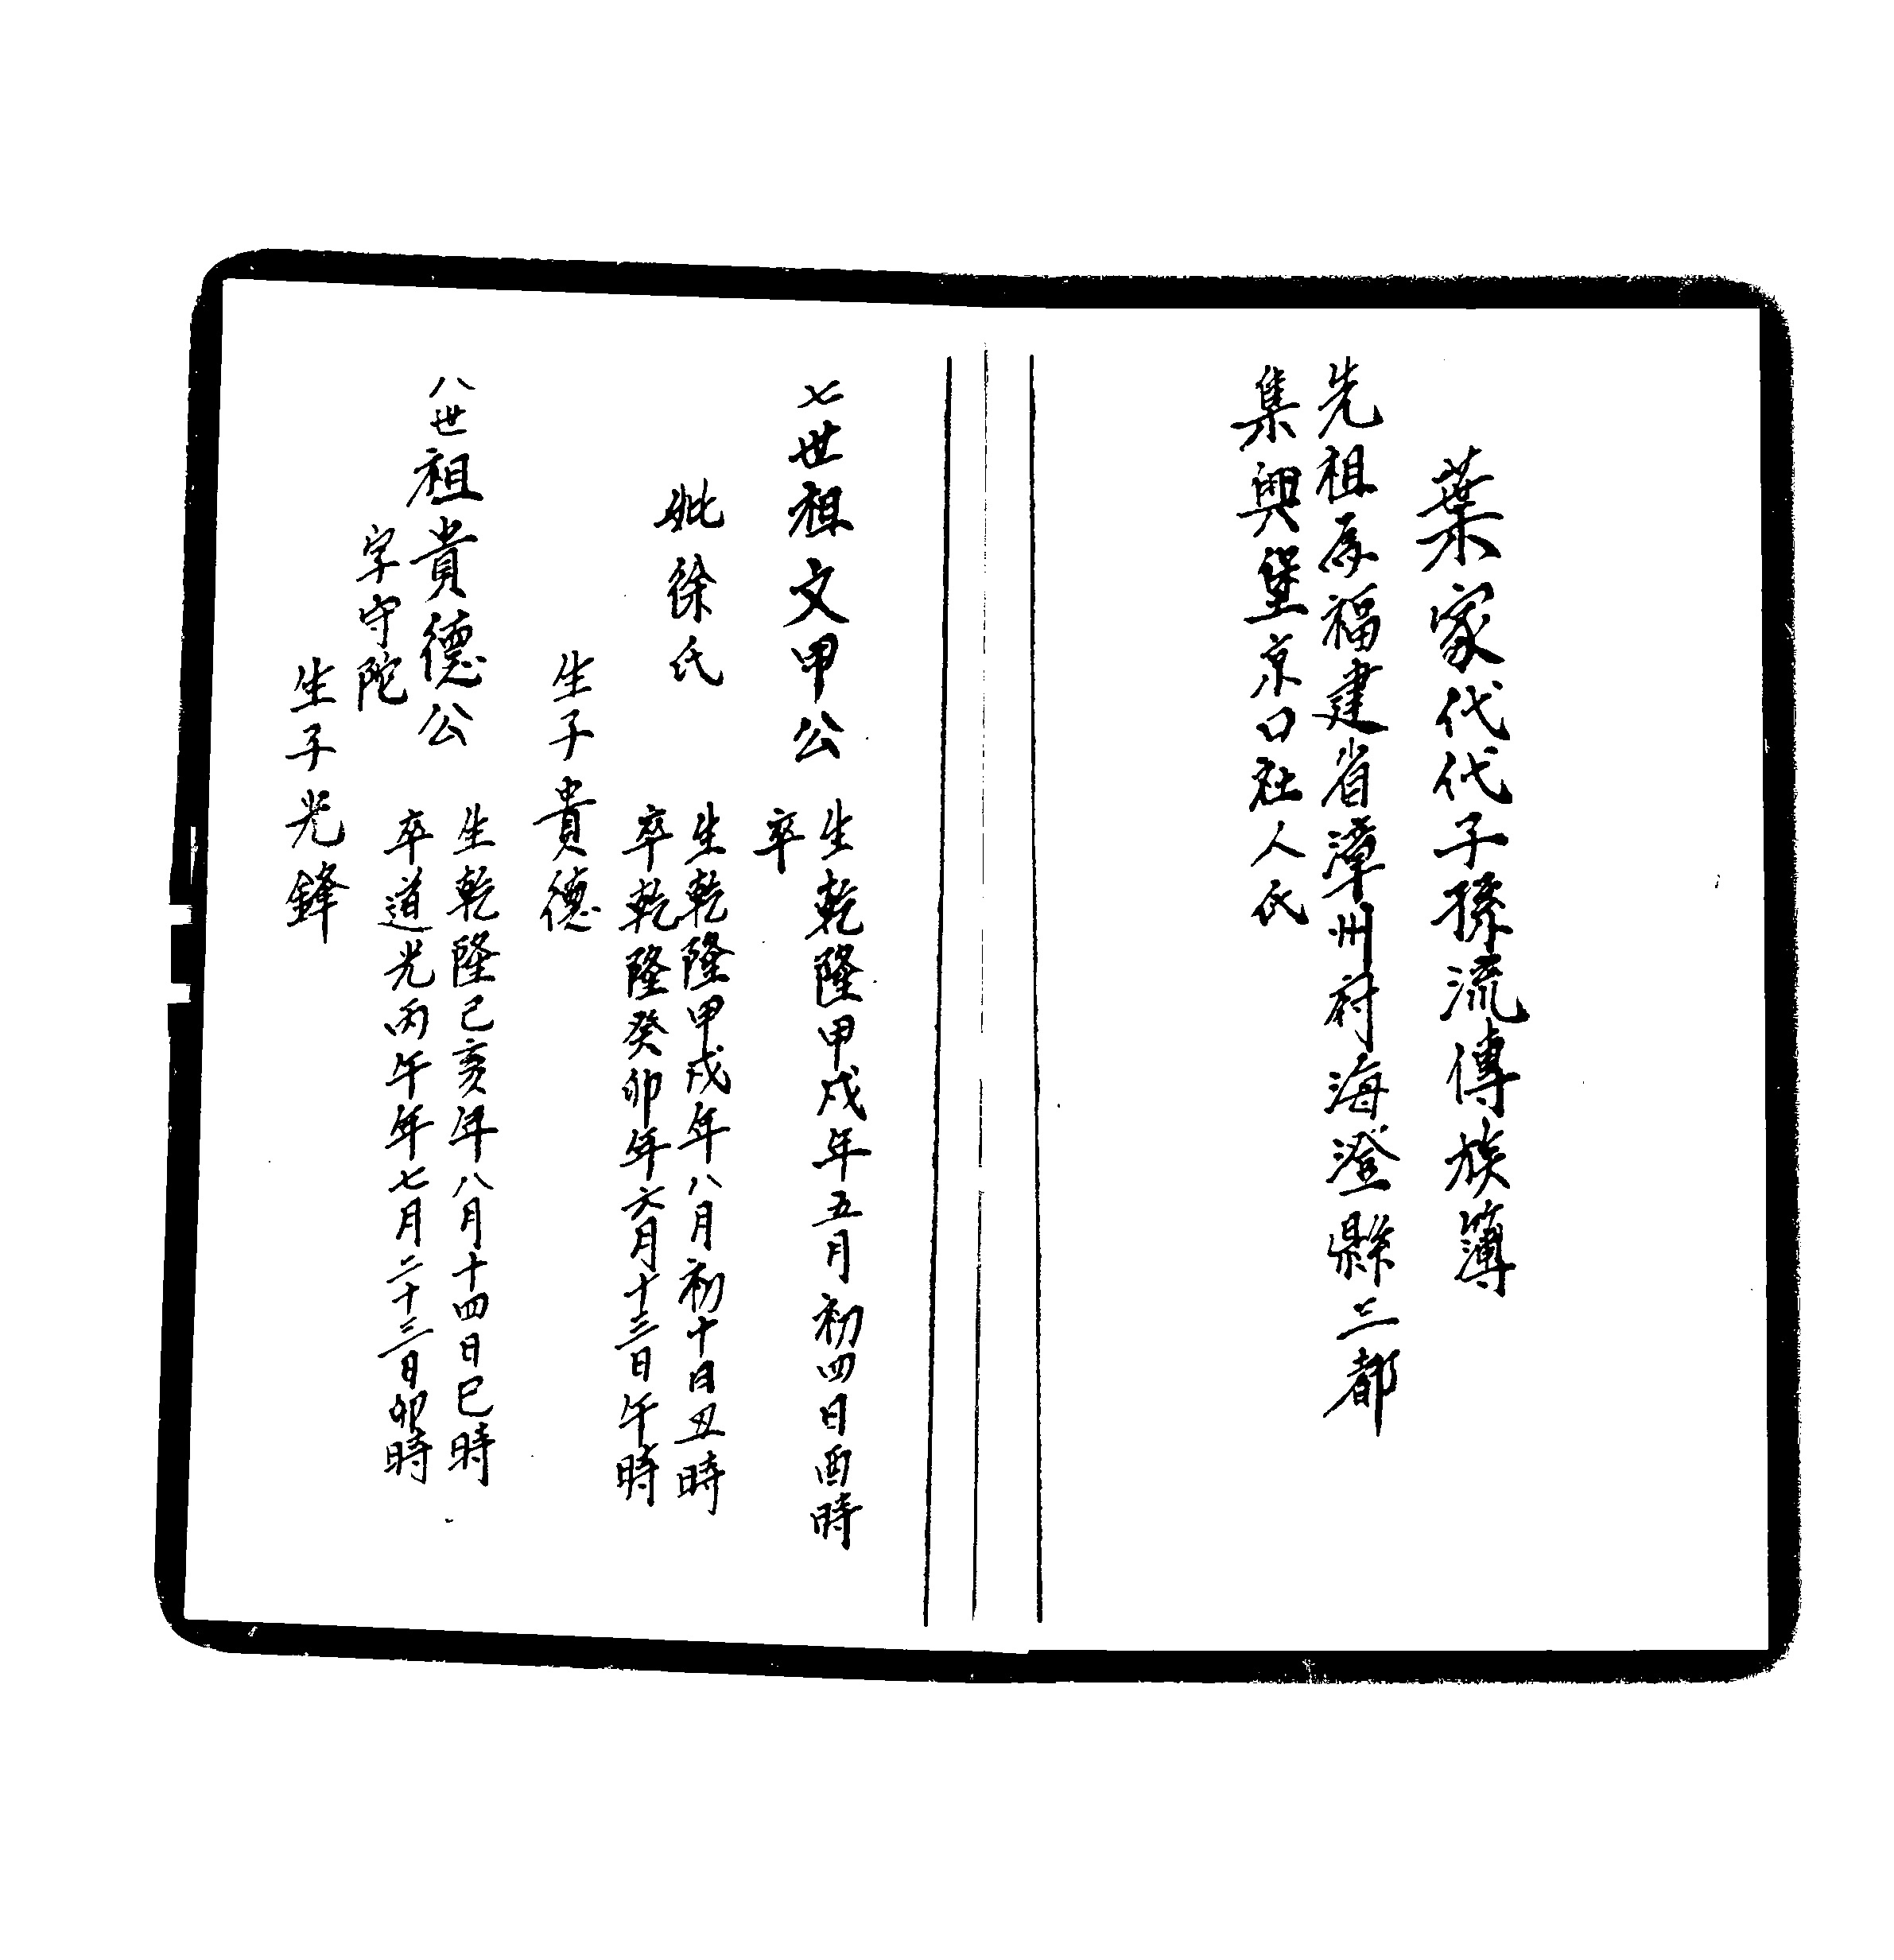 葉家代代子孫流傳族簿
先祖原福建省漳州府海澄縣三都
集興堡京口社人氏
七世祖文甲公
生乾隆甲戌年五月初四日酉時
卒
妣徐氏
生乾隆甲戌年八月初十日丑時
卒乾隆癸卯年六月十三日午時
生子貴德
八世祖貴德公
字守陀
生乾隆己亥年八月十四日巳時
卒道光丙午年七月二十三日卯時
生子光鋒